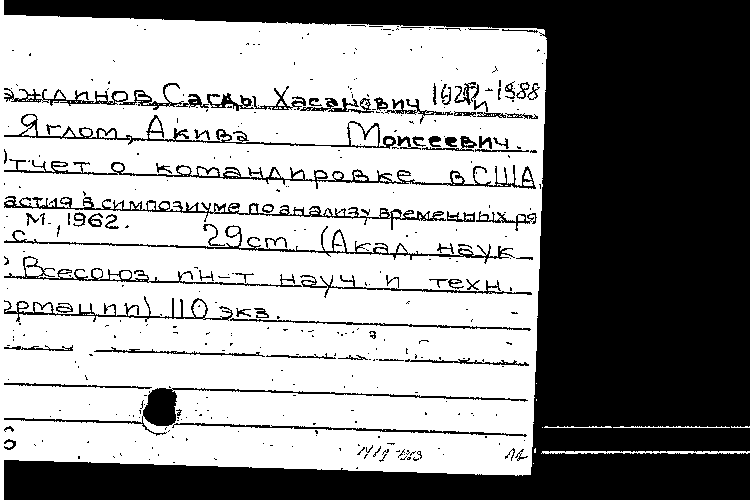 эждинов, Сагды Хасанович 1988
Яглом, Акива Моисеевич.
Отчет о командировке в США
астия в симпозиуме по анализу временных ря
М., 1962.
с. 29 см. (Акад. наук
Р. Всесоюз. ин-т науч. и техн.
ормации) 110 экз.